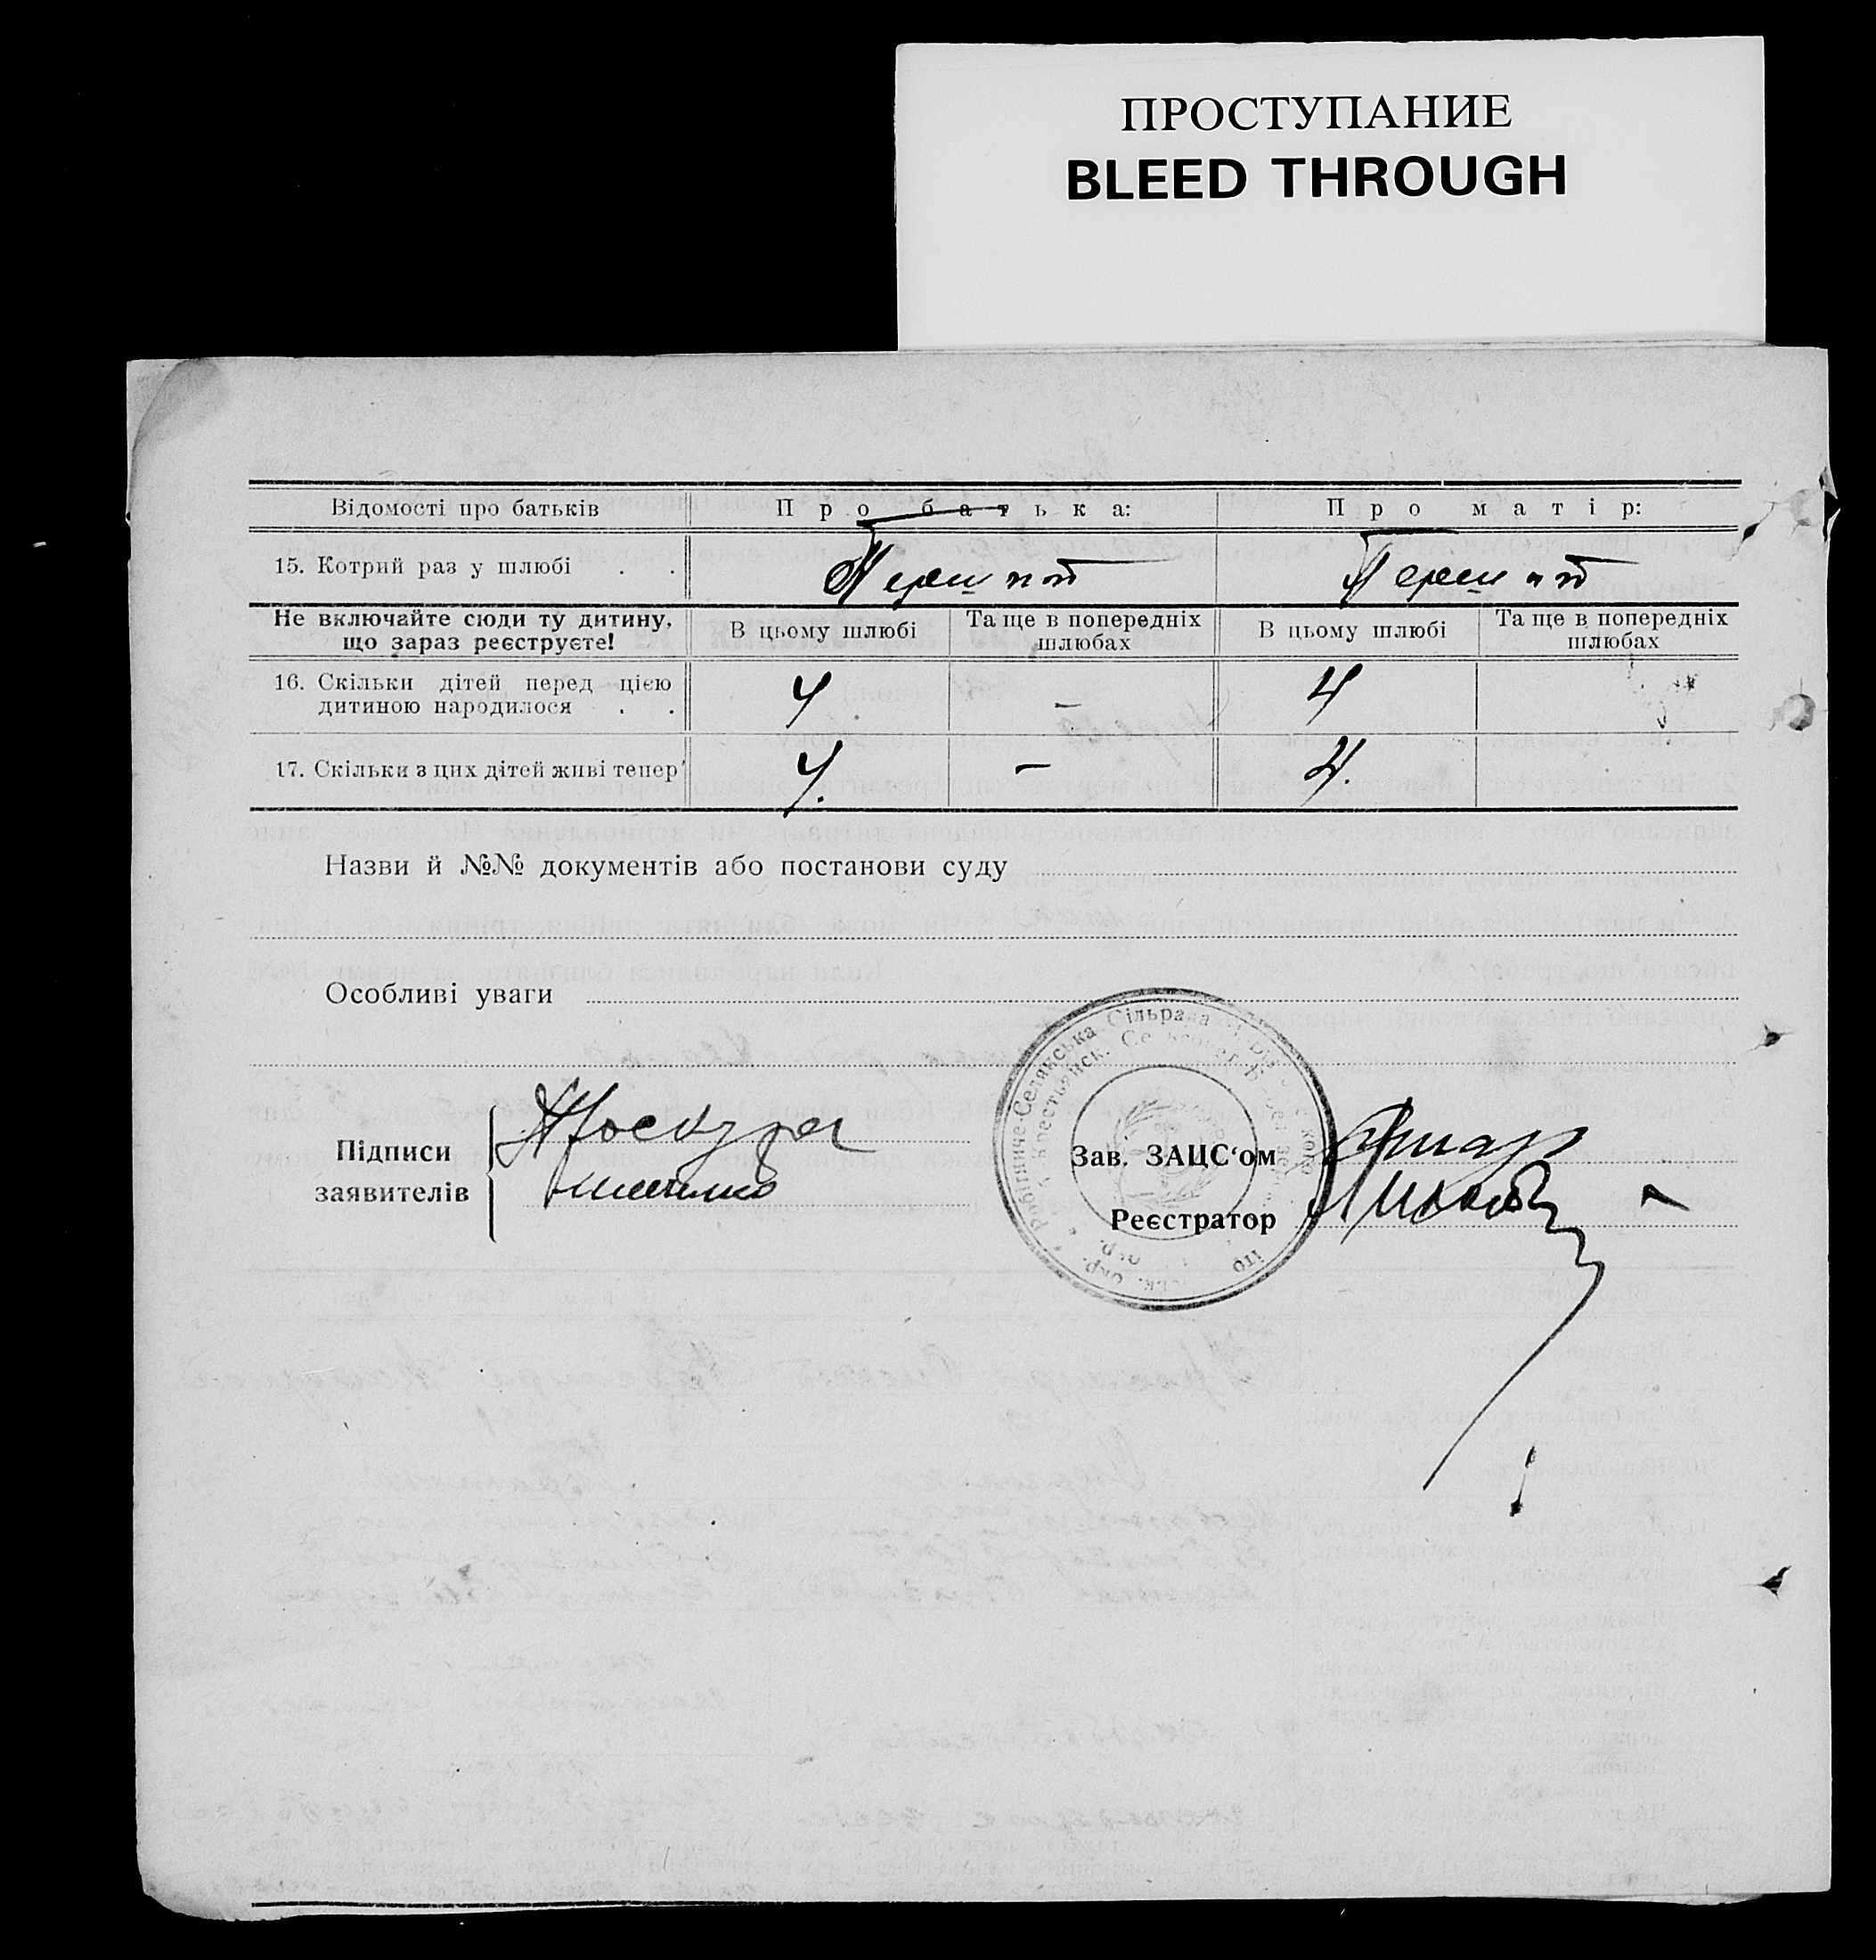 ПРОСТУПАНИЕ
BLEED THROUGH
Відомості про батьків Про батька: Про матір:
15. Котрий раз у шлюбі . . Перший Перший
Не включайте сюди ту дитину, що зараз реєструєте! В цьому шлюбі Та ще в попередніх шлюбах В цьому шлюбі Та ще в попередніх шлюбах
16. Скільки дітей перед цією
дитиною народилося . . 4 – 4
17. Скільки з цих дітей живі тепер 4. – 4.
Назви й №№ документів або постанови суду
Особливі уваги
Робітниче-Селянська Сільрада
Підписи
заявителів
Проскура
Зав. ЗАЦС‘ом
Реєстратор